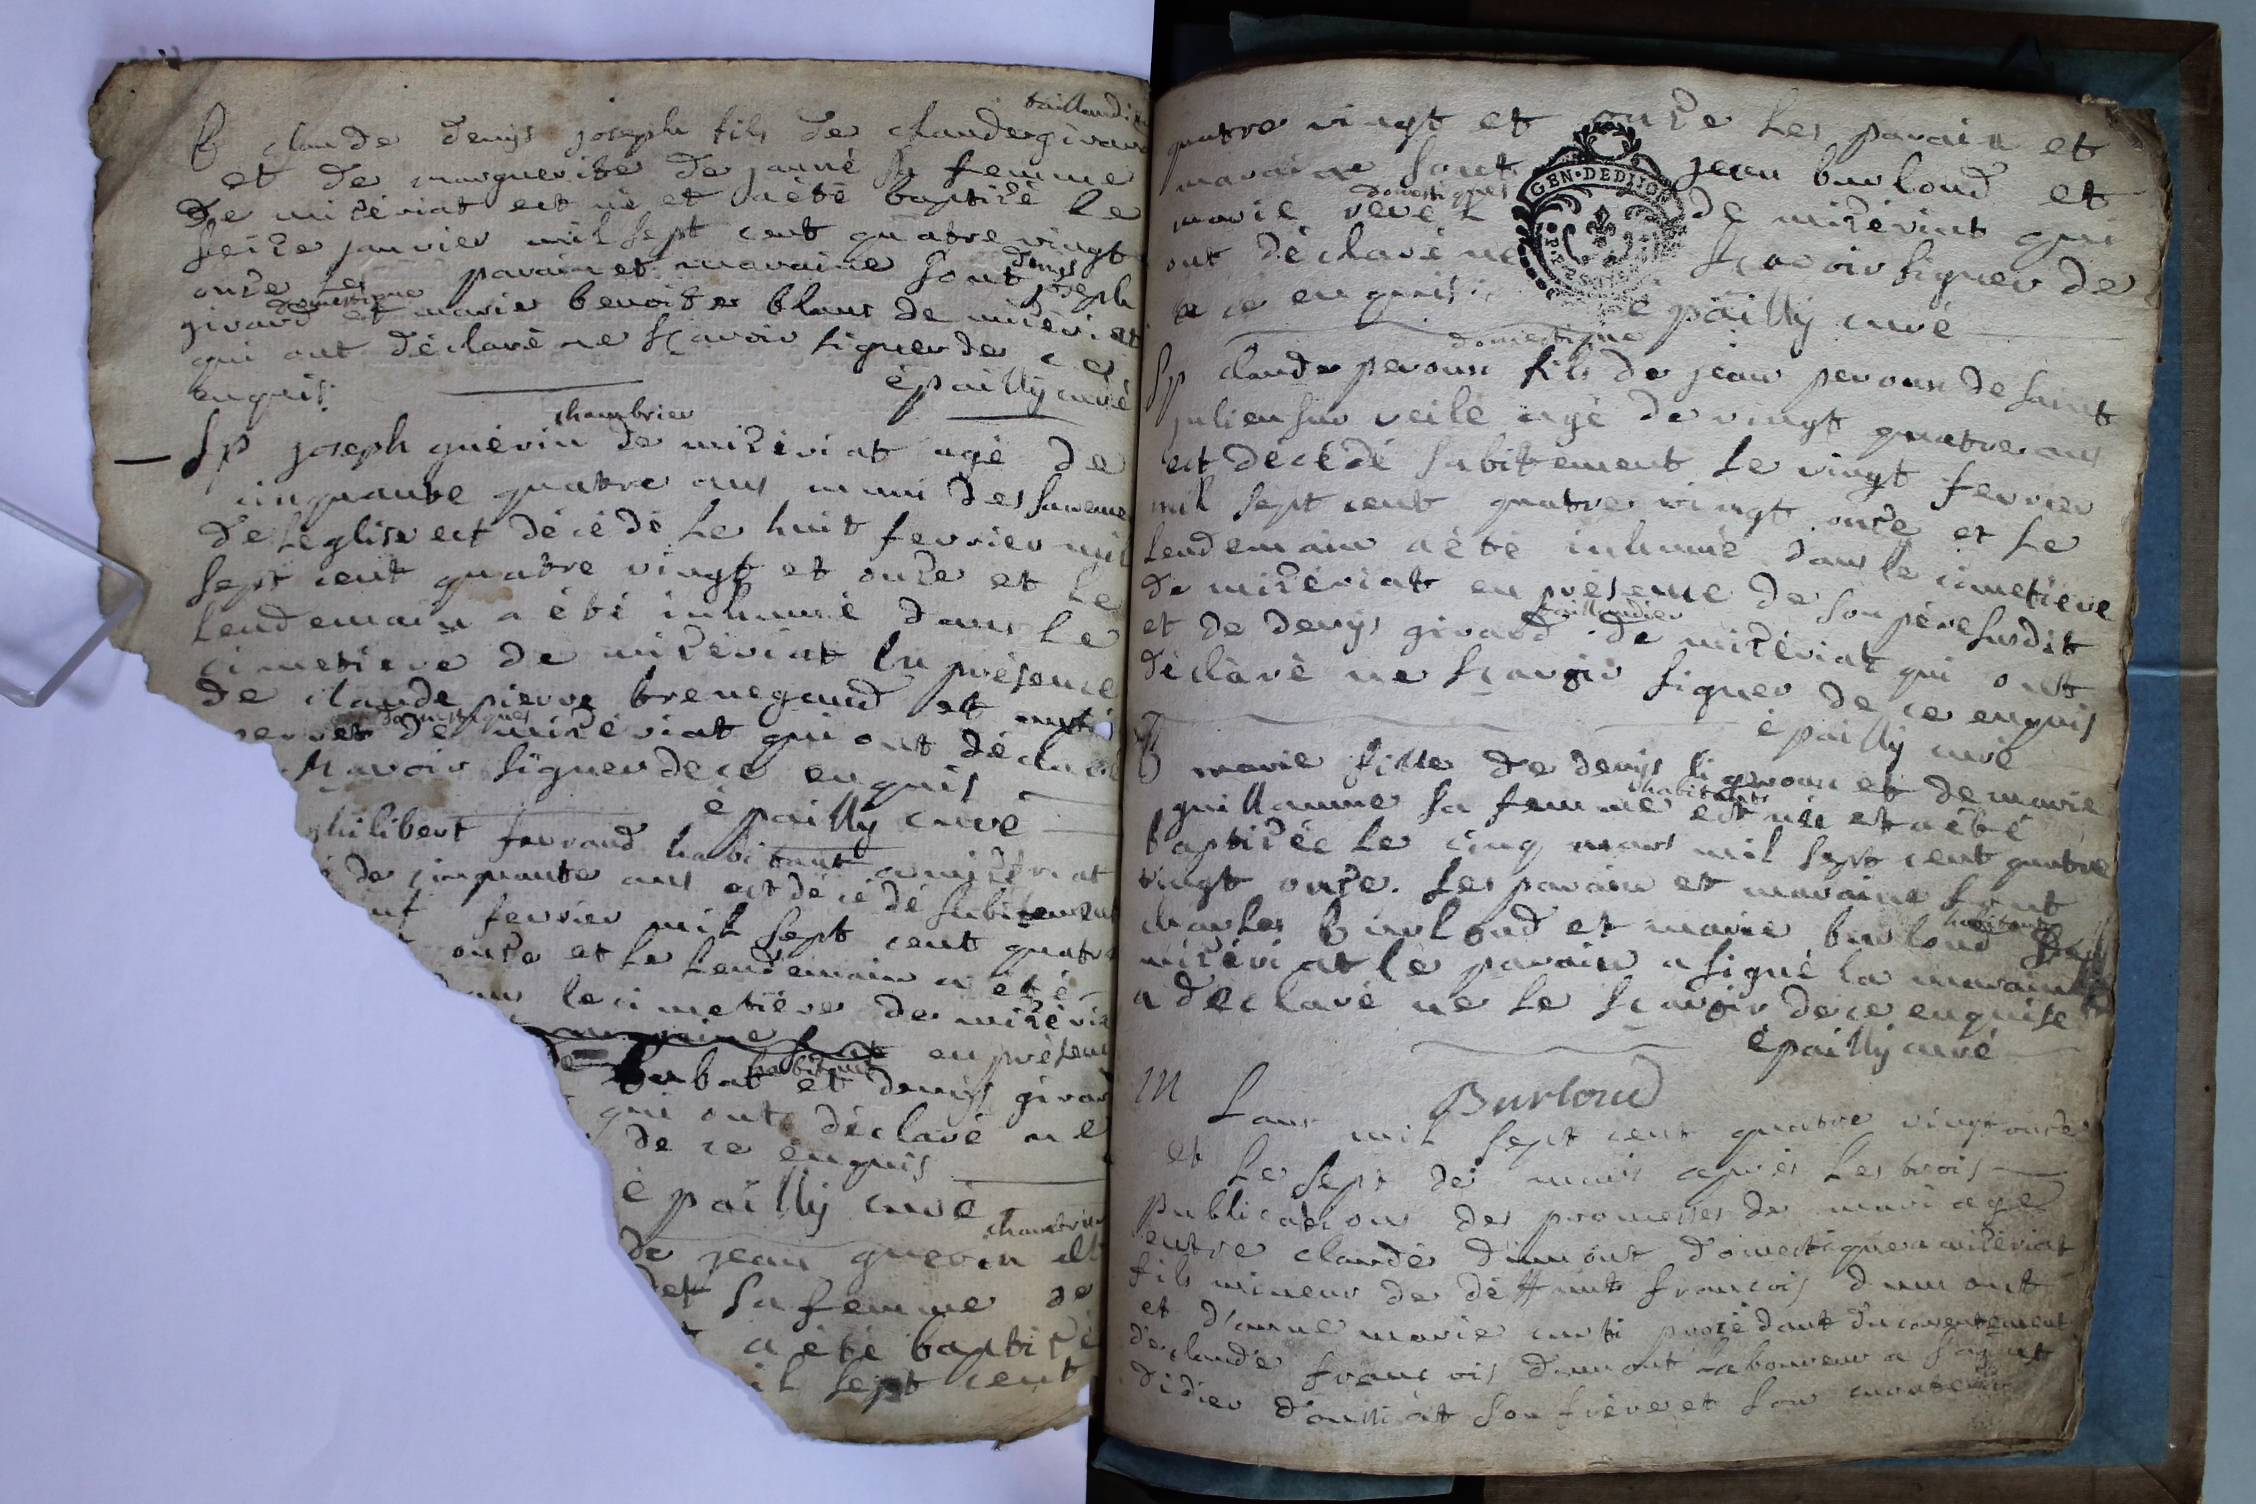 taillandier
B claude denys joseph fils de claude girard
et de marguerite de janné sa femme
de misériat est né et a été baptisé le
seize janvier mil sept cent quatre vingt
onze les parain et maraine sont denys joseph
domestique
girard et marie benoite blanc de misériat
qui ont déclaré ne sçavoir signer de ce
enquis. épailly curé
chambrier
Sp joseph guérin de misériat agé de
cinquante quatre ans muni des sacremen
de Leglise est décédé le huit fevrier mil
sept cent quatre vingt et onze et le
Lendemain a été inhumé dans le
cimetiere de misériat en présence
de claude pierre brenegaud et
domestiques
perret de misériat qui ont déclaré
sçavoir signer de ce enquis
épailly curé
philibert ferrand habitant a misériat
é de cinquante ans est décédé subitement
uf fevrier mil sept cent quatre
onze et le Lendemain a été
ans le cimetière de miséria
en présence
habitant
et denys girard
qui ont déclaré ne
de ce enquis
épailly curé
chambrier
de jean guerin et
et sa femme de
a été baptisé
il sept cent
quatre vingt et onze Les parain et
maraine sont jean burloud et
domestiques
marie de misériat qui
ont déclaré ne sçavoir signer de
ce enquis épailly curé
GEN·DE DIJO
domestique
Sp claude peroux fils de jean peroux de saint
julien sur veile agé de vingt quatre ans
est décédé subitement le vingt fevrier
mil sept cent quatre vingt onze et le
Lendemain a été inhumé dans le cimetière
de misériat en présence de son père susdit
taillandier
et de denys girard de misériat qui ont
déclaré ne sçavoir signer de ce enquis
épailly curé
B marie fille de denys et de marie
habitants
guillaume sa femme est née et a été
baptisée le cinq mars mil sept cent quatre
vingt onze. Les parain et maraine sont
habitants
charles burloud et marie burloud
misériat le parain a signé la maraine
a déclaré ne le sçavoir de ce enquise
épailly curé
M Burloud
Lan mil sept cent quatre vingt onze
et le sept de mars après les trois
publications des promesses de mariage
entre claude dumont domestique a misériat
fils mineur de deffunt francois dumont
et d'anne marie curti procédant du consentement
de claude francois dumont Laboureur a saint
didier d'aussiat son frère et son curateur